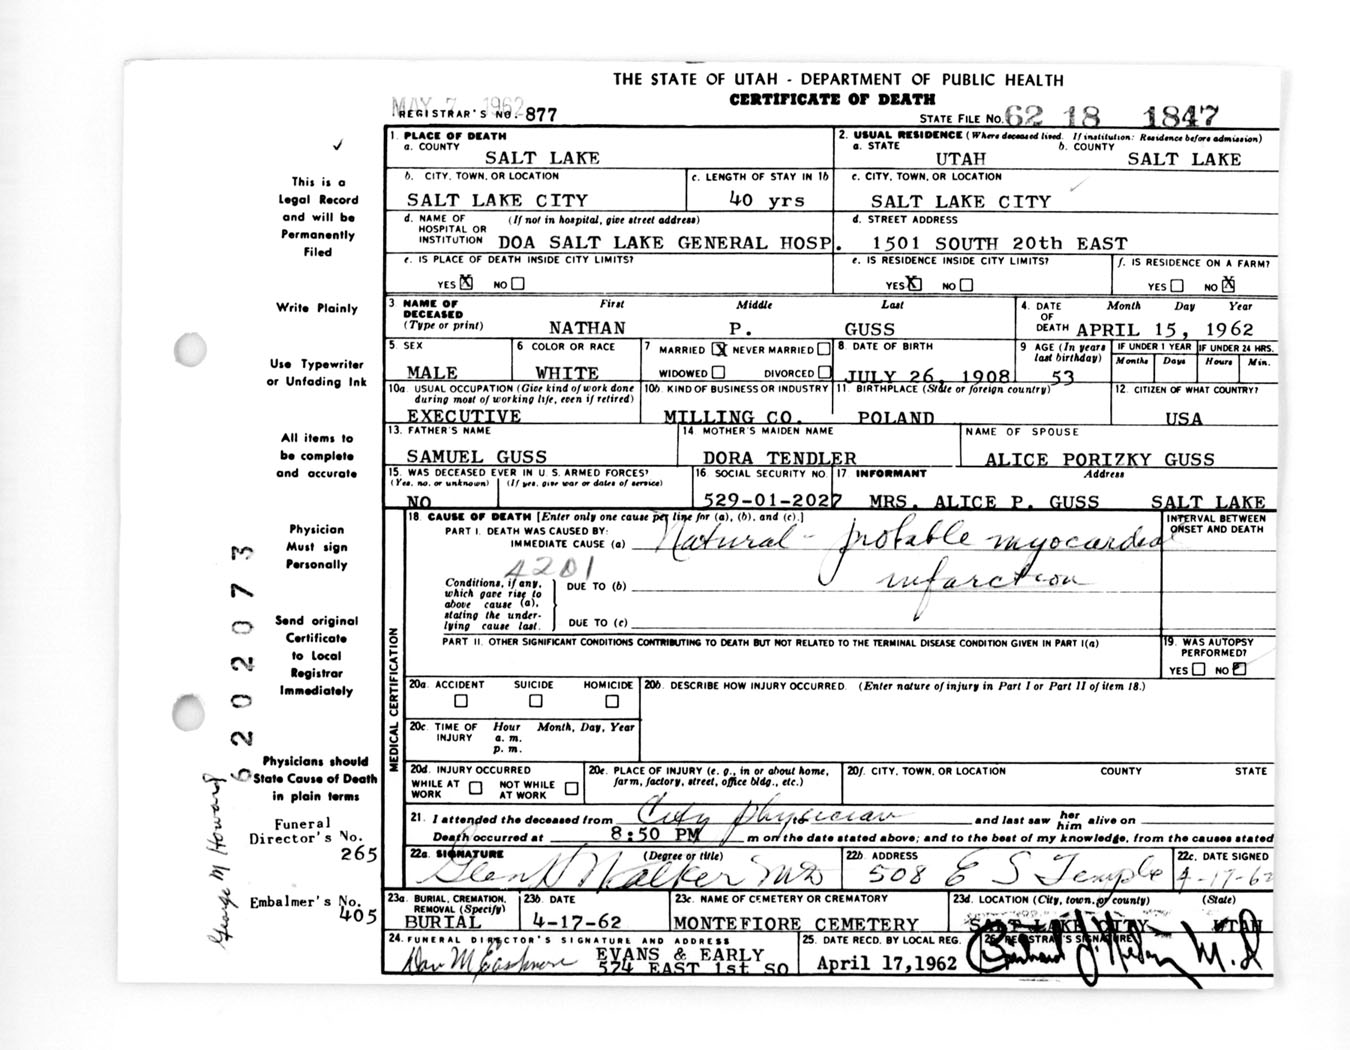 THE STATE OF UTAH - DEPARTMENT OF PUBLIC HEALTH
CERTIFICATE OF DEATH
MAY 7 1962
REGISTRAR'S NO. 877
STATE FILE NO. 62 18 1847
1. PLACE OF DEATH
a. COUNTY
SALT LAKE
2. USUAL RESIDENCE (Where deceased lived. If institution: Residence before admission)
a. STATE b. COUNTY
UTAH SALT LAKE
b. CITY, TOWN, OR LOCATION
SALT LAKE CITY
c. LENGTH OF STAY IN 1b
40 yrs
c. CITY, TOWN, OR LOCATION
SALT LAKE CITY
d. NAME OF HOSPITAL OR INSTITUTION (If not in hospital, give street address)
DOA SALT LAKE GENERAL HOSP.
d. STREET ADDRESS
1501 SOUTH 20th EAST
e. IS PLACE OF DEATH INSIDE CITY LIMITS?
YES X NO
e. IS RESIDENCE INSIDE CITY LIMITS?
YES X NO
f. IS RESIDENCE ON A FARM?
YES NO X
3 NAME OF DECEASED (Type or print)
First Middle Last
NATHAN P. GUSS
4. DATE OF DEATH
Month Day Year
APRIL 15, 1962
5. SEX
MALE
6 COLOR OR RACE
WHITE
7 MARRIED X NEVER MARRIED
WIDOWED DIVORCED
8 DATE OF BIRTH
JULY 26, 1908
9 AGE (In years last birthday)
53
IF UNDER 1 YEAR
Months Days
IF UNDER 24 HRS.
Hours Min.
10a. USUAL OCCUPATION (Give kind of work done during most of working life, even if retired)
EXECUTIVE
10b. KIND OF BUSINESS OR INDUSTRY
MILLING CO.
11. BIRTHPLACE (State or foreign country)
POLAND
12. CITIZEN OF WHAT COUNTRY?
USA
13. FATHER'S NAME
SAMUEL GUSS
14. MOTHER'S MAIDEN NAME
DORA TENDLER
NAME OF SPOUSE
ALICE PORIZKY GUSS
15. WAS DECEASED EVER IN U. S. ARMED FORCES?
(Yes, no, or unknown) (If yes, give war or dates of service)
NO
16. SOCIAL SECURITY NO.
529-01-2027
17. INFORMANT Address
MRS. ALICE P. GUSS SALT LAKE
18. CAUSE OF DEATH [Enter only one cause per line for (a), (b), and (c).]
PART I. DEATH WAS CAUSED BY:
IMMEDIATE CAUSE (a) Natural - probable myocardial
infarction
4201
Conditions, if any, which gave rise to above cause (a), stating the underlying cause last.
DUE TO (b)
DUE TO (c)
INTERVAL BETWEEN ONSET AND DEATH
PART II. OTHER SIGNIFICANT CONDITIONS CONTRIBUTING TO DEATH BUT NOT RELATED TO THE TERMINAL DISEASE CONDITION GIVEN IN PART I(a)
19. WAS AUTOPSY PERFORMED?
YES NO
MEDICAL CERTIFICATION
20a. ACCIDENT SUICIDE HOMICIDE
20b. DESCRIBE HOW INJURY OCCURRED. (Enter nature of injury in Part I or Part II of item 18.)
20c. TIME OF INJURY
Hour Month, Day, Year
a. m.
p. m.
20d. INJURY OCCURRED
WHILE AT WORK NOT WHILE AT WORK
20e. PLACE OF INJURY (e. g., in or about home, farm, factory, street, office bldg., etc.)
20f. CITY, TOWN, OR LOCATION COUNTY STATE
21. I attended the deceased from City physician and last saw her him alive on
Death occurred at 8:50 PM m on the date stated above; and to the best of my knowledge, from the causes stated
22a. SIGNATURE (Degree or title)
Walker MD
22b. ADDRESS
508 E S Temple
22c. DATE SIGNED
4-17-62
23a. BURIAL, CREMATION, REMOVAL (Specify)
BURIAL
23b. DATE
4-17-62
23c. NAME OF CEMETERY OR CREMATORY
MONTEFIORE CEMETERY
23d. LOCATION (City, town, or county) (State)
SALT LAKE CITY UTAH
24. FUNERAL DIRECTOR'S SIGNATURE AND ADDRESS
EVANS & EARLY
574 EAST 1st SO
25. DATE RECD. BY LOCAL REG.
April 17, 1962
26. REGISTRAR'S SIGNATURE
M. D
This is a
Legal Record
and will be
Permanently
Filed
Write Plainly
Use Typewriter
or Unfading Ink
All items to
be complete
and accurate
Physician
Must sign
Personally
Send original
Certificate
to Local
Registrar
Immediately
Physicians should
State Cause of Death
in plain terms
Funeral
Director's No.
265
Embalmer's No.
405
6 2 0 2 0 7 3
George M Howard